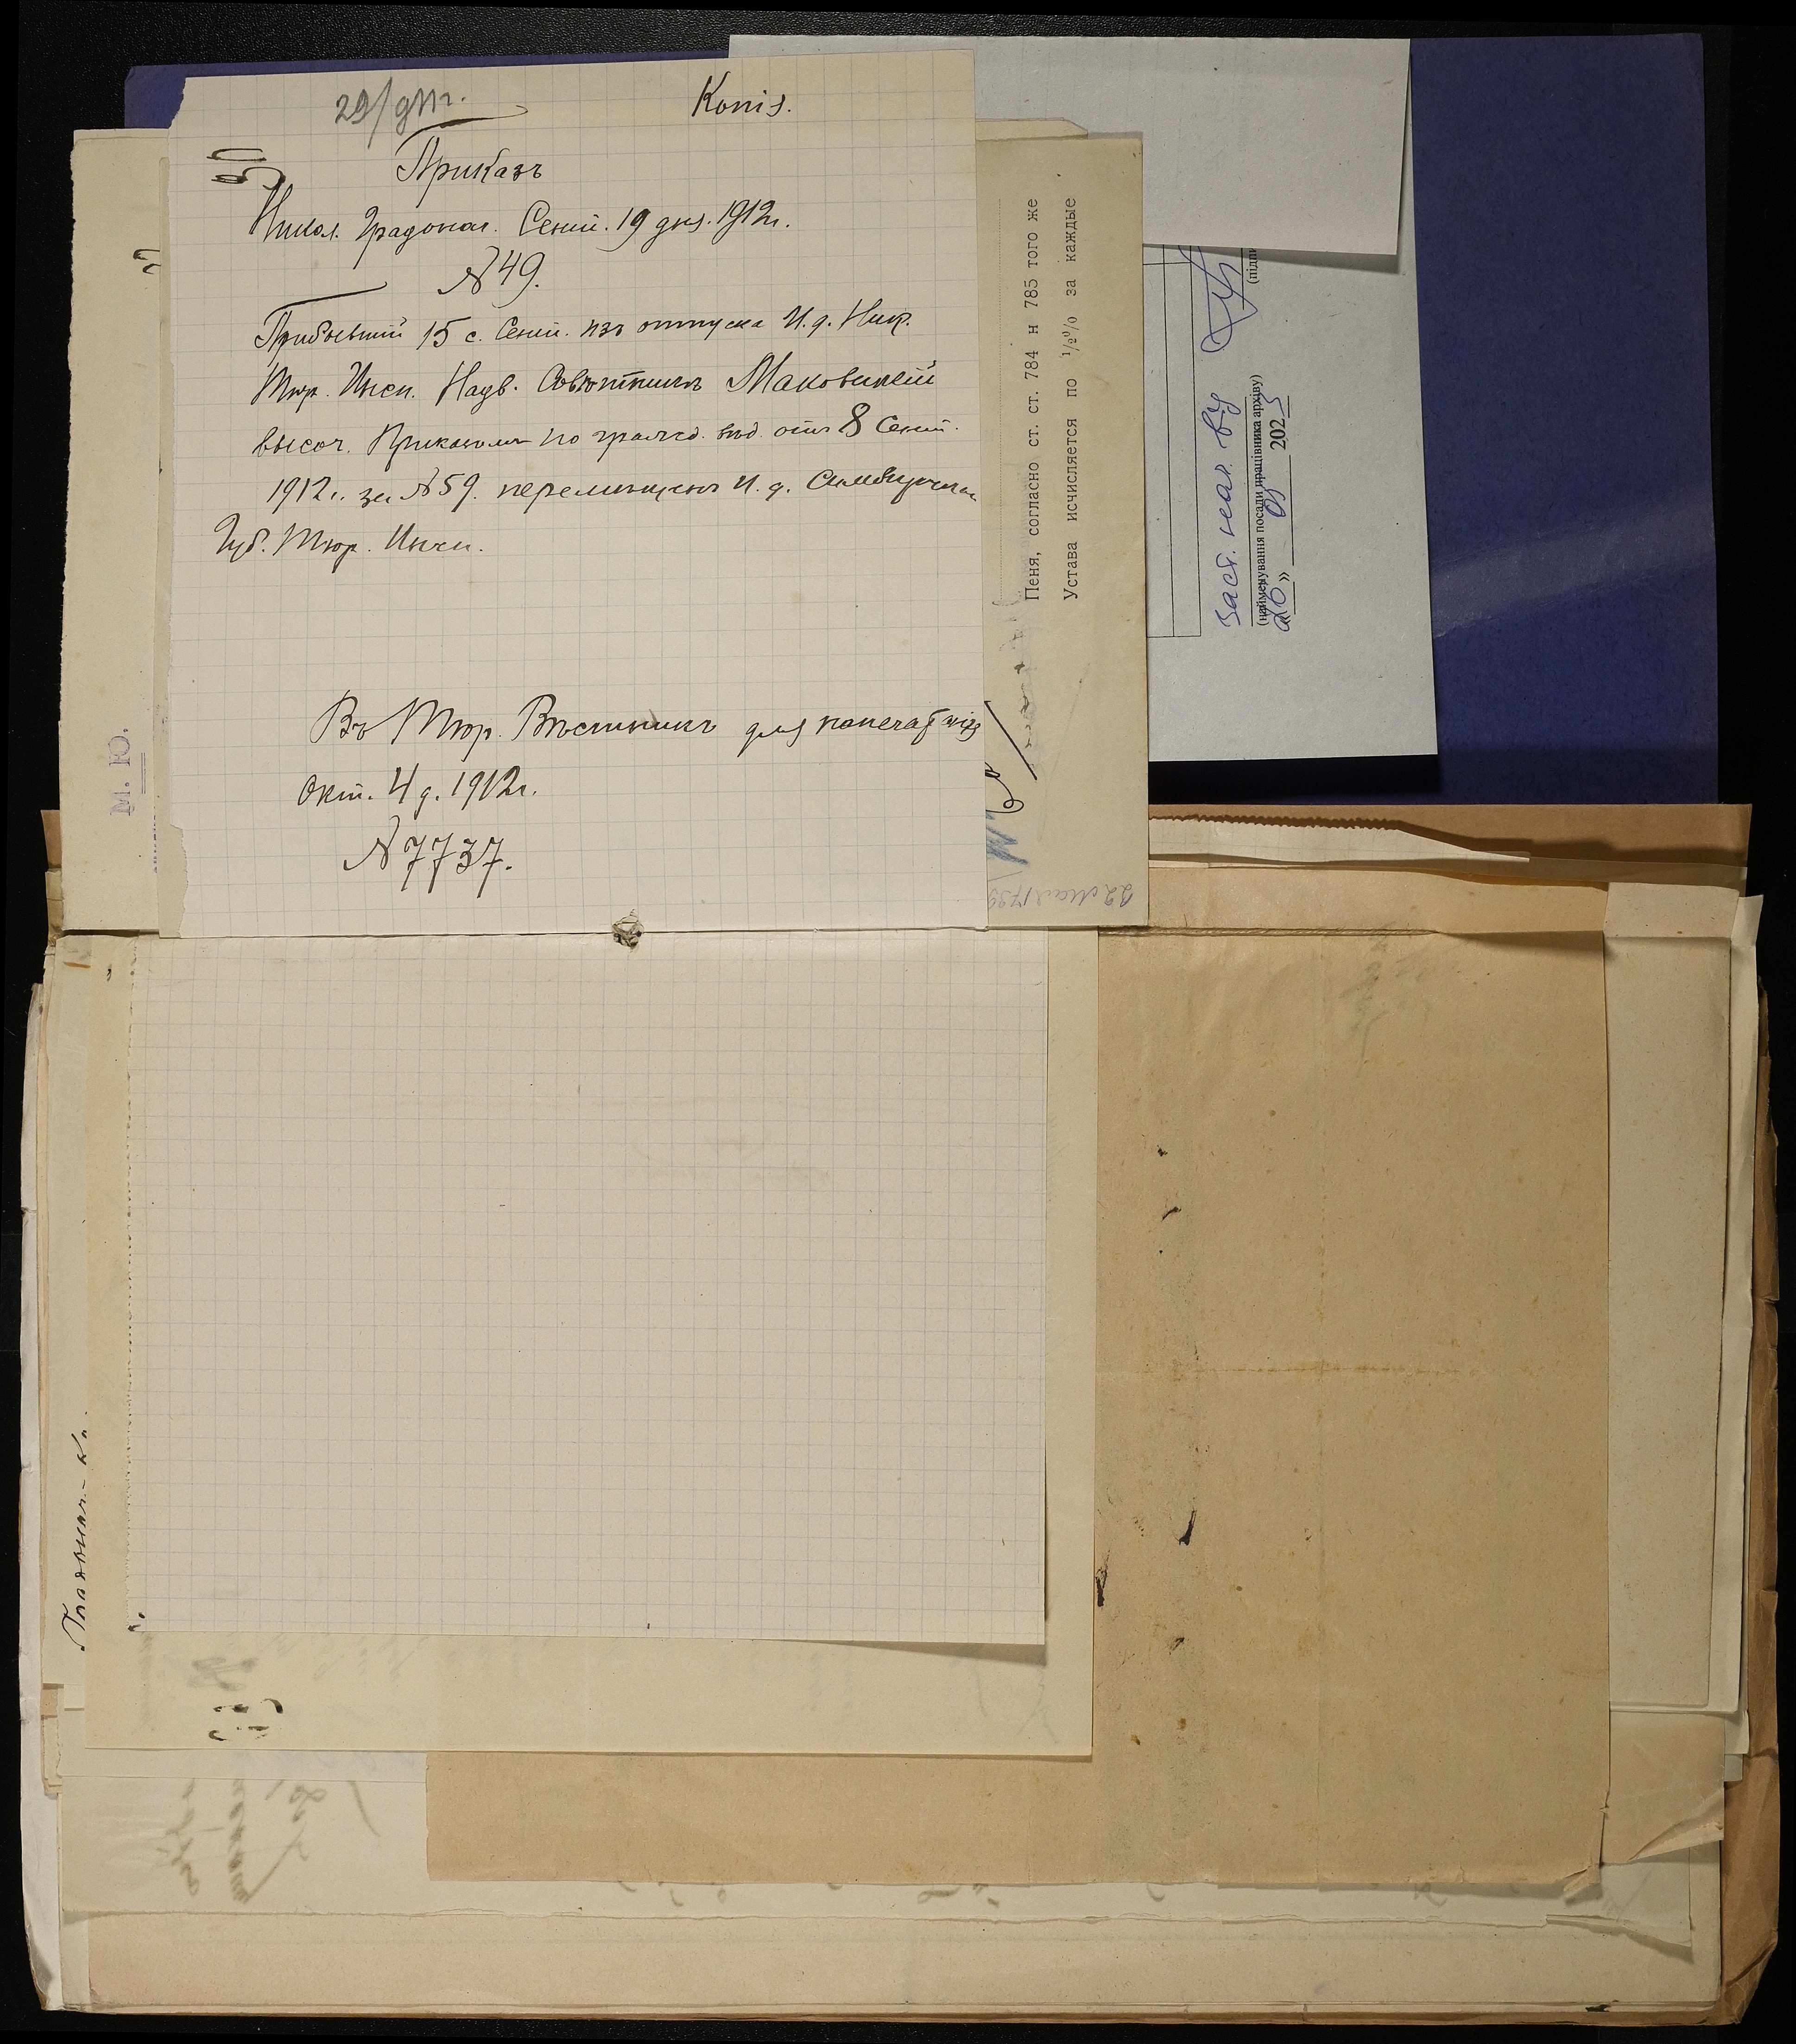 29/
Копія.
Приказъ
Никол. Градонач. Сент. 19 дня. 1912г.
№ 49.
Прибывшій 15 с. Сент. изъ отпуска И. д. Ник.
Тюр. Инсп. Надв. Совѣтникъ Маковскій
высоч. Приказомъ по гражд. вѣд. отъ 8 Сент.
1912г. за № 59. перемѣщенъ И. д. Симбирскаго
Губ. Тюр. Инсп.
Въ Тюр. Вѣстникъ для напечатанія
Окт. 4 д. 1912г.
№ 7737.
М. Ю.
Пеня, согласно ст. ст. 784 и 785 того же
Устава исчисляется по 1/2% за каждые
22 мая 1739
Заст. нач. від
(найменування посади працівника архіву)
«20» 05 2025
(підпи